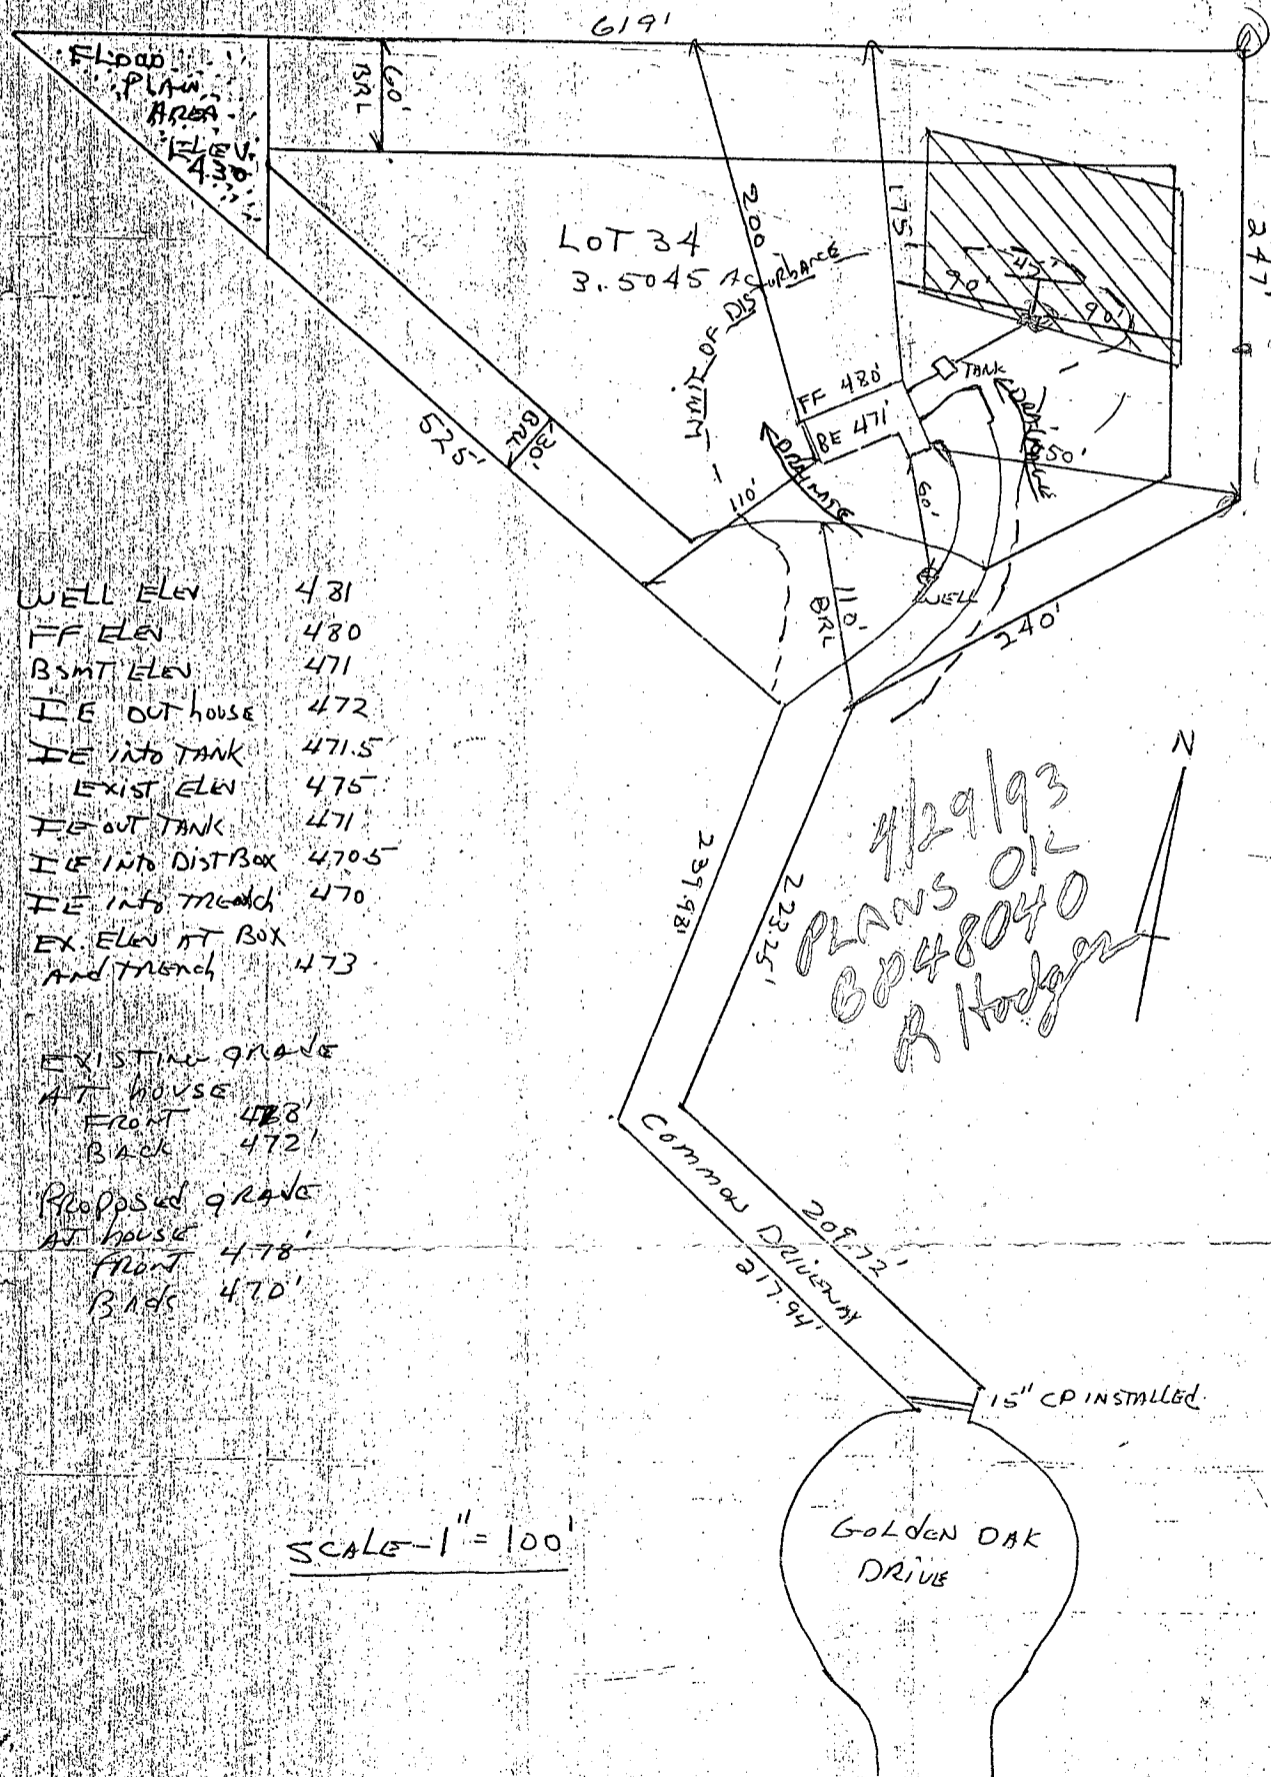 619'
FLOOD
PLAIN
AREA
ELEV.
430
60'
BRL
200'
175'
247'
LOT 34
3.5045 AC
LIMIT OF DISTURBANCE
45'
90'
90'
TANK
FF 480'
BE 471'
DRAINAGE
DRAINAGE
150'
525'
30'
BRL
110'
60'
WELL
110'
BRL
240'
WELL ELEV 481
FF ELEV 480
BSMT ELEV 471
IE OUT house 472
IE into TANK 471.5
EXIST ELEV 475
IE OUT TANK 471
IE INTO DIST BOX 470.5
IE into Trench 470
EX. ELEV AT BOX
And Trench 473
EXISTING GRADE
AT HOUSE
FRONT 478'
BACK 472'
PROPOSED GRADE
AT house
FRONT 478'
BACK 470'
N
4/29/93
PLANS OK
BP48040
R Hodges
239.98'
223.25'
COMMON DRIVEWAY
209.72'
217.94'
15" CP INSTALLED
GOLDEN OAK
DRIVE
SCALE-1"=100'